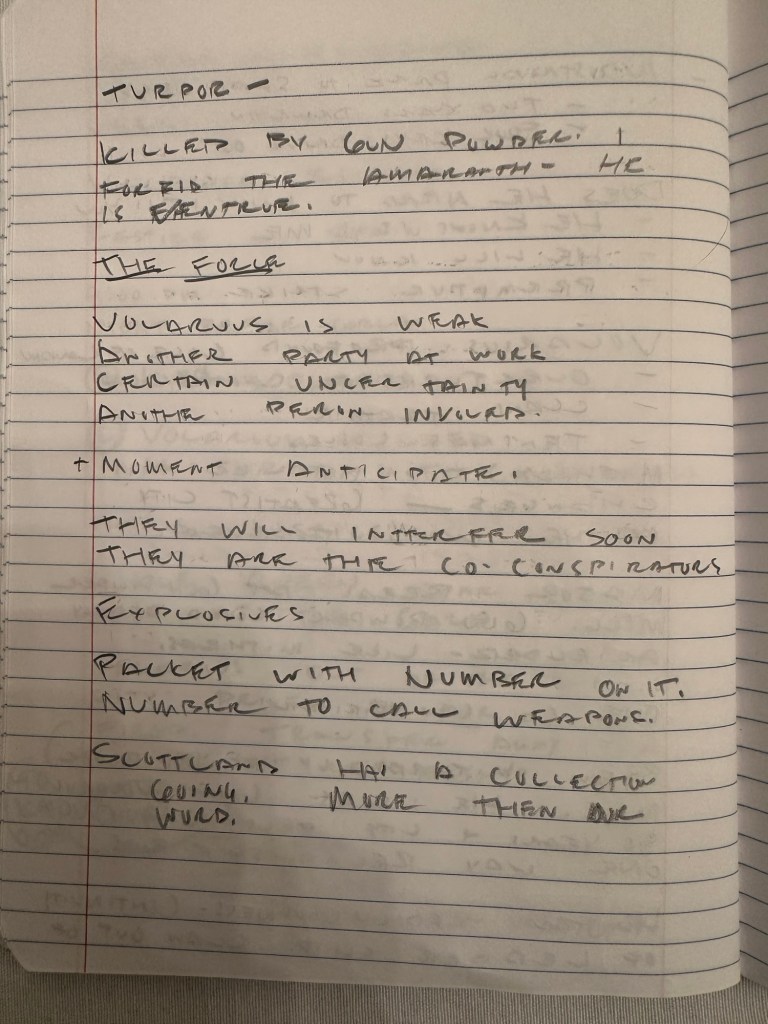 TURPOR -
KILLED BY GUN POWDER. I
FORBID THE AMARANTH - HE
IS
THE FORCE
VOLARVUS IS WEAK
ANOTHER PARTY AT WORK
CERTAIN UNCERTAINTY
ANOTHE PERON INVOLED.
+ MOMENT ANTICIPATE.
THEY WILL INTERFER SOON
THEY ARE THE CO-CONSPIRATORS
EXPLOSIVES
PACKET WITH NUMBER ON IT.
NUMBER TO CALL WEAPONS.
SCOTTLAND HAS A COLLECTION
GOING. MORE THEN OUR
WORD.